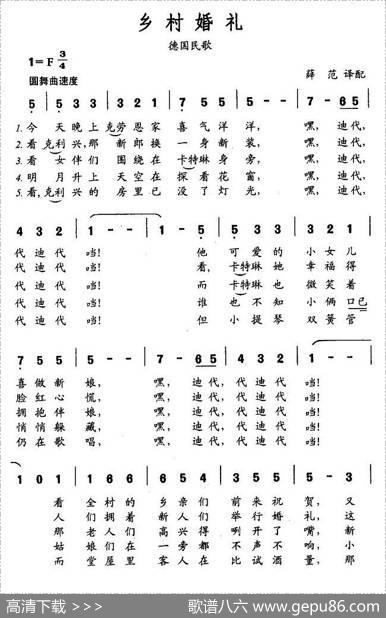 乡村婚礼
德国民歌
1=F 3/4
圆舞曲速度
薛 范 译配
5 5 3 3 3 1 1 1 7 5 5 5 - - 7 - 65
1.今 天晚上克劳恩家 喜气洋 洋, 嘿, 迪代,
2.看克利兴,那 新郎换 一身新 装, 嘿, 迪代,
3.看 女伴们 围绕在 卡特琳身 旁, 嘿, 迪代,
4.明 月升上 天空在 探看花 窗, 嘿, 迪代,
5.看,克利兴的 房里已 没了灯 光, 嘿, 迪代,
4 3 2 1 - - 1 - 5 5 3 3 3 1 1 1
代迪代 哨! 他 可爱的 小女儿
代迪代 哨! 看,卡特琳她 幸福得
代迪代 哨! 而 卡特琳也 微笑着
代迪代 哨! 谁 也不知 小俩口已
代迪代 哨! 但 小提琴 双簧管
7 5 5 5 - - 7 - 65 4 3 2 1 -
喜做新 娘, 嘿, 迪代, 代迪代 哨!
脸红心 慌, 嘿, 迪代, 代迪代 哨!
拥抱伴 娘, 嘿, 迪代, 代迪代 哨!
悄悄躲 藏, 嘿, 迪代, 代迪代 哨!
仍在歌 唱, 嘿, 迪代, 代迪代 哨!
1 0 1 6 6 6 6 5 4 4 3 2 5 - 5
看 全村的 乡亲们 前来祝 贺, 又
人 们拥着 新人们 举行婚 礼, 这
那 老人们 高兴得 咧开了 嘴, 新
姑 娘们在 一旁都 不声不 响, 小
而 堂屋里 客人在 比试酒 量, 那
高清下载 >>>
歌谱八六 www.gepu86.com